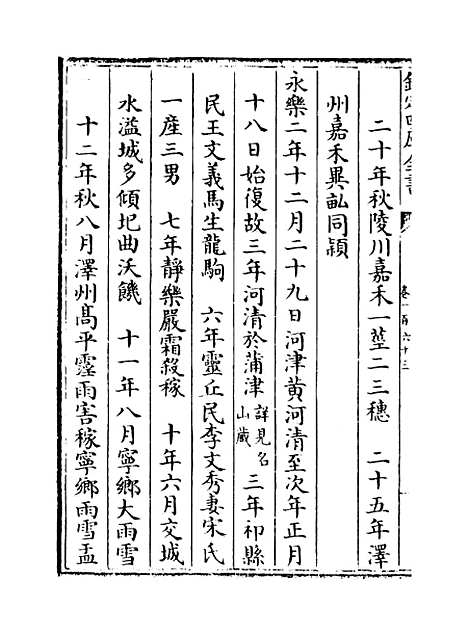 欽定四庫全書
卷一百六十三
二十年秋陵川嘉禾一莖二三穗　二十五年澤
州嘉禾異畝同穎
永樂二年十二月二十九日河津黄河清至次年正月
十八日始復故三年河清於蒲津詳見名山藏　三年祁縣
民王文義馬生龍駒　六年靈丘民李文秀妻宋氏
一產三男　七年靜樂嚴霜殺稼　十年六月交城
水溢城多傾圮曲沃饑　十一年八月寧鄉大雨雪
十二年秋八月澤州高平霪雨害稼寧鄉雨雪盂